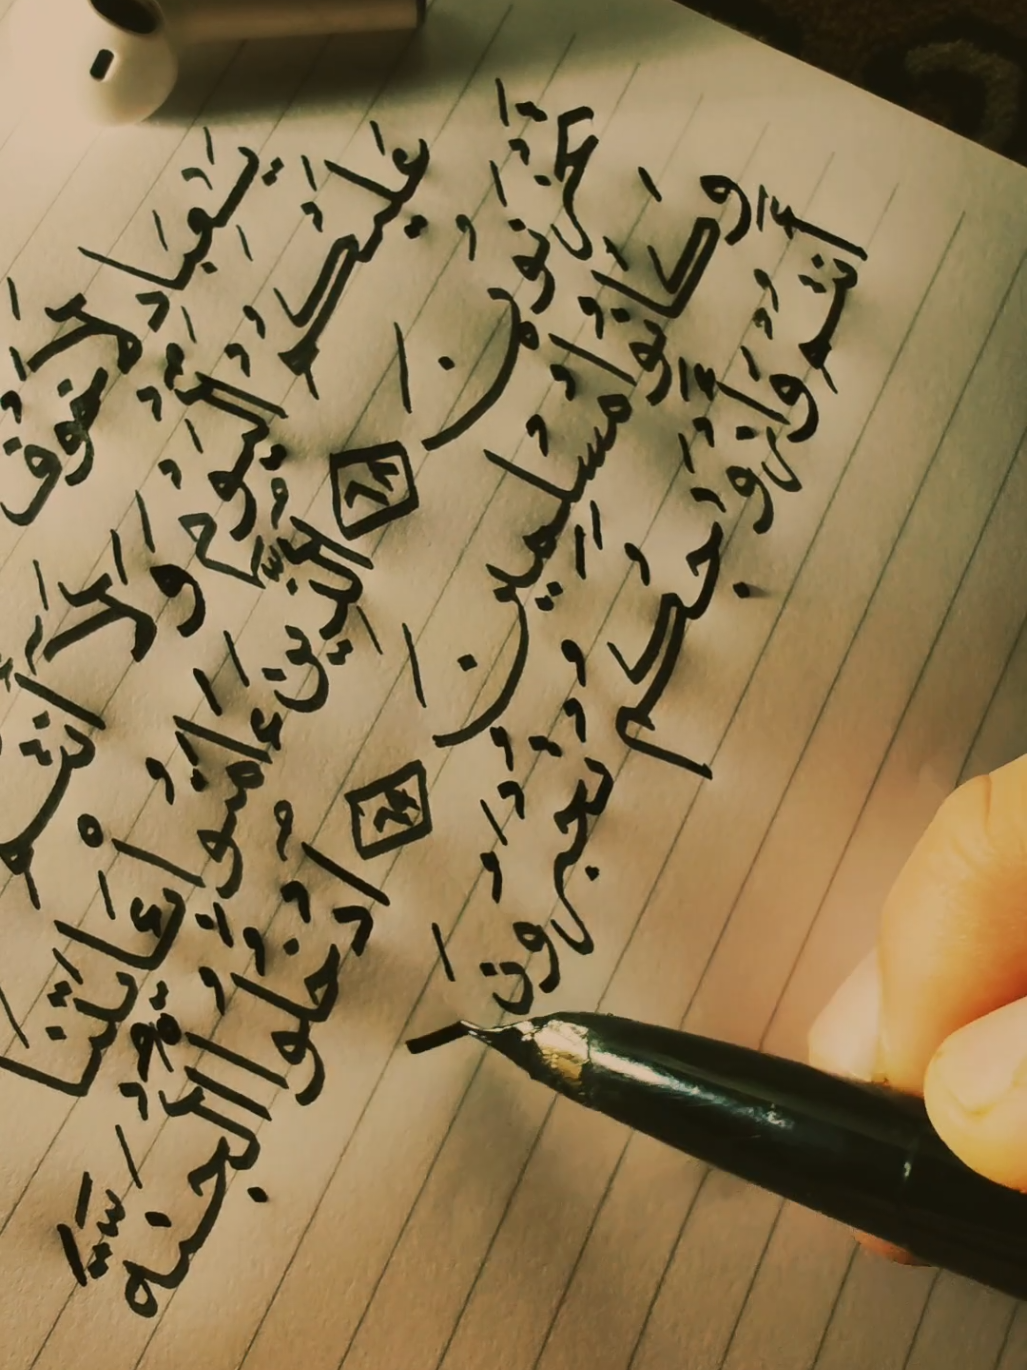 يَٰعِبَادِ لَا خَوْفٌ
عَلَيْكُمُ الْيَوْمَ وَلَآ أَنتُمْ
تَحْزَنُونَ ٦٨ الَّذِينَ ءَامَنُواْ بِـَٔايَٰتِنَا
وَكَانُواْ مُسْلِمِينَ ٦٩ ادْخُلُواْ الْجَنَّةَ
أَنتُمْ وَأَزْوَٰجُكُمْ تُحْبَرُونَ